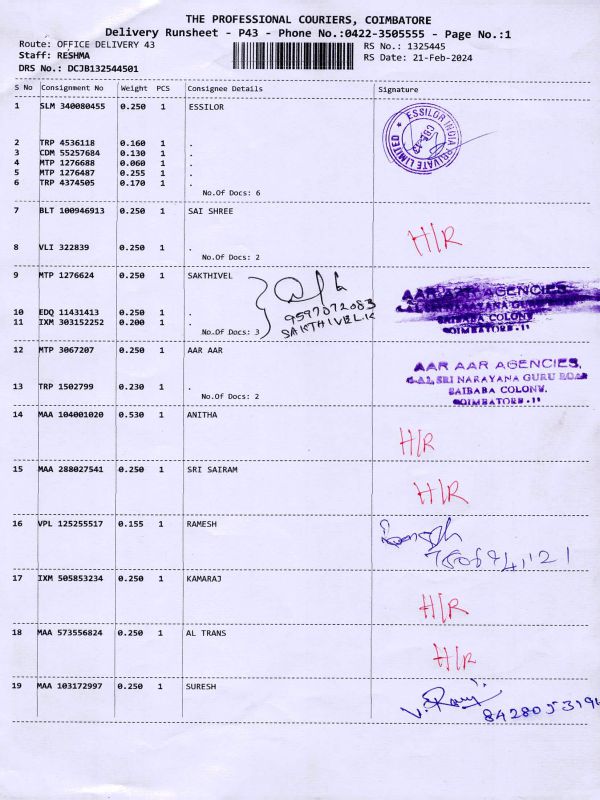 THE PROFESSIONAL COURIERS, COIMBATORE
Delivery Runsheet - P43 - Phone No.:0422-3505555 - Page No.:1
Route: OFFICE DELIVERY 43
RS No.: 1325445
Staff: RESHMA
RS Date: 21-Feb-2024
DRS No.: DCJB132544501
S No Consignment No Weight PCS Consignee Details Signature
1 SLM 340080455 0.250 1 ESSILOR
ESSILOR INDIA PRIVATE LIMITED
2 TRP 4536118 0.160 1 .
3 CDM 55257684 0.130 1 .
4 MTP 1276688 0.060 1 .
5 MTP 1276487 0.255 1 .
6 TRP 4374505 0.170 1 .
No.Of Docs: 6
7 BLT 100946913 0.250 1 SAI SHREE
H/R
8 VLI 322839 0.250 1 .
No.Of Docs: 2
9 MTP 1276624 0.250 1 SAKTHIVEL
AAR AAR AGENCIES,
10 EDQ 11431413 0.250 1 .
9597072083
SAIBABA COLONY
11 IXM 303152252 0.200 1 .
No.Of Docs: 3
SAKTHIVEL.K
COIMBATORE-11
12 MTP 3067207 0.250 1 AAR AAR
AAR AAR AGENCIES,
SRI NARAYANA GURU ROAD
13 TRP 1502799 0.230 1 .
SAIBABA COLONY,
No.Of Docs: 2
COIMBATORE-11
14 MAA 104001020 0.530 1 ANITHA
H/R
15 MAA 288027541 0.250 1 SRI SAIRAM
H/R
16 VPL 125255517 0.155 1 RAMESH
17 IXM 505853234 0.250 1 KAMARAJ
H/R
18 MAA 573556824 0.250 1 AL TRANS
H/R
19 MAA 103172997 0.250 1 SURESH